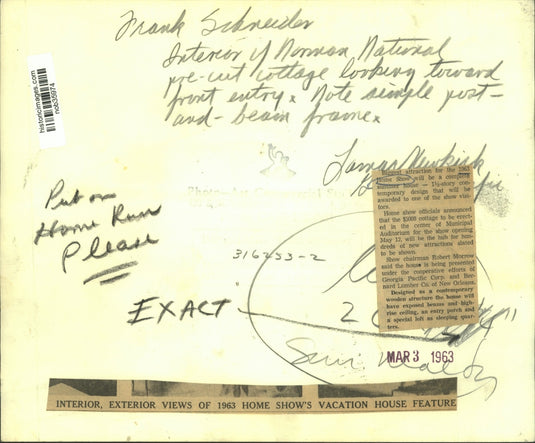 Frank Schneider
Interior of Norman National
pre-cut cottage looking toward
front entry. Note simple post-
and-beam frame.
historicimages.com
Lamar Newkirk
Biggest attraction for the 1963
Home Show will be a complete
summer house — 1½-story con-
temporary design that will be
awarded to one of the show vis-
itors.
Home show officials announced
that the $5000 cottage to be erect-
ed in the center of Municipal
Auditorium for the show opening
May 12, will be the hub for hun-
dreds of new attractions slated
to be shown.
Show chairman Robert Morrow
said the house is being presented
under the cooperative efforts of
Georgia Pacific Corp. and Ber-
nard Lumber Co. of New Orleans.
Designed as a contemporary
wooden structure the house will
have exposed beams and high-
rise ceiling, an entry porch and
a special loft as sleeping quar-
ters.
Put on
Home Run
Please
316233-2
EXACT
MAR 3 1963
INTERIOR, EXTERIOR VIEWS OF 1963 HOME SHOW'S VACATION HOUSE FEATURE